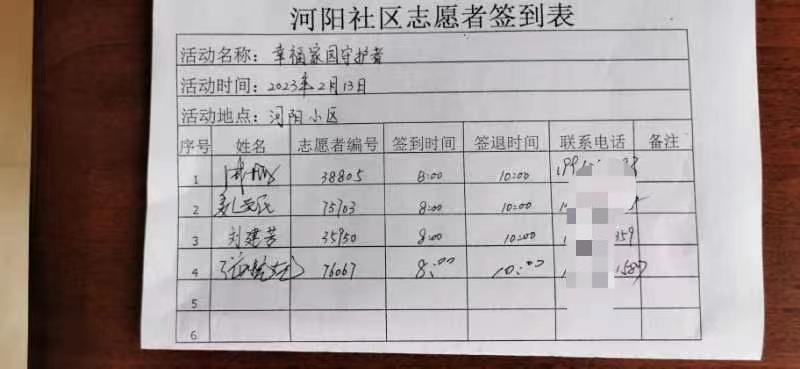 河阳社区志愿者签到表
活动名称：幸福家园守护者
活动时间：2023年2月13日
活动地点：河阳小区
序号 姓名 志愿者编号 签到时间 签退时间 联系电话 备注
1 38805 8:00 10:00
2 75703 8:00 10:00
3 刘建芳 35950 8:00 10:00 359
4 76067 8:00 10:00 1587
5
6